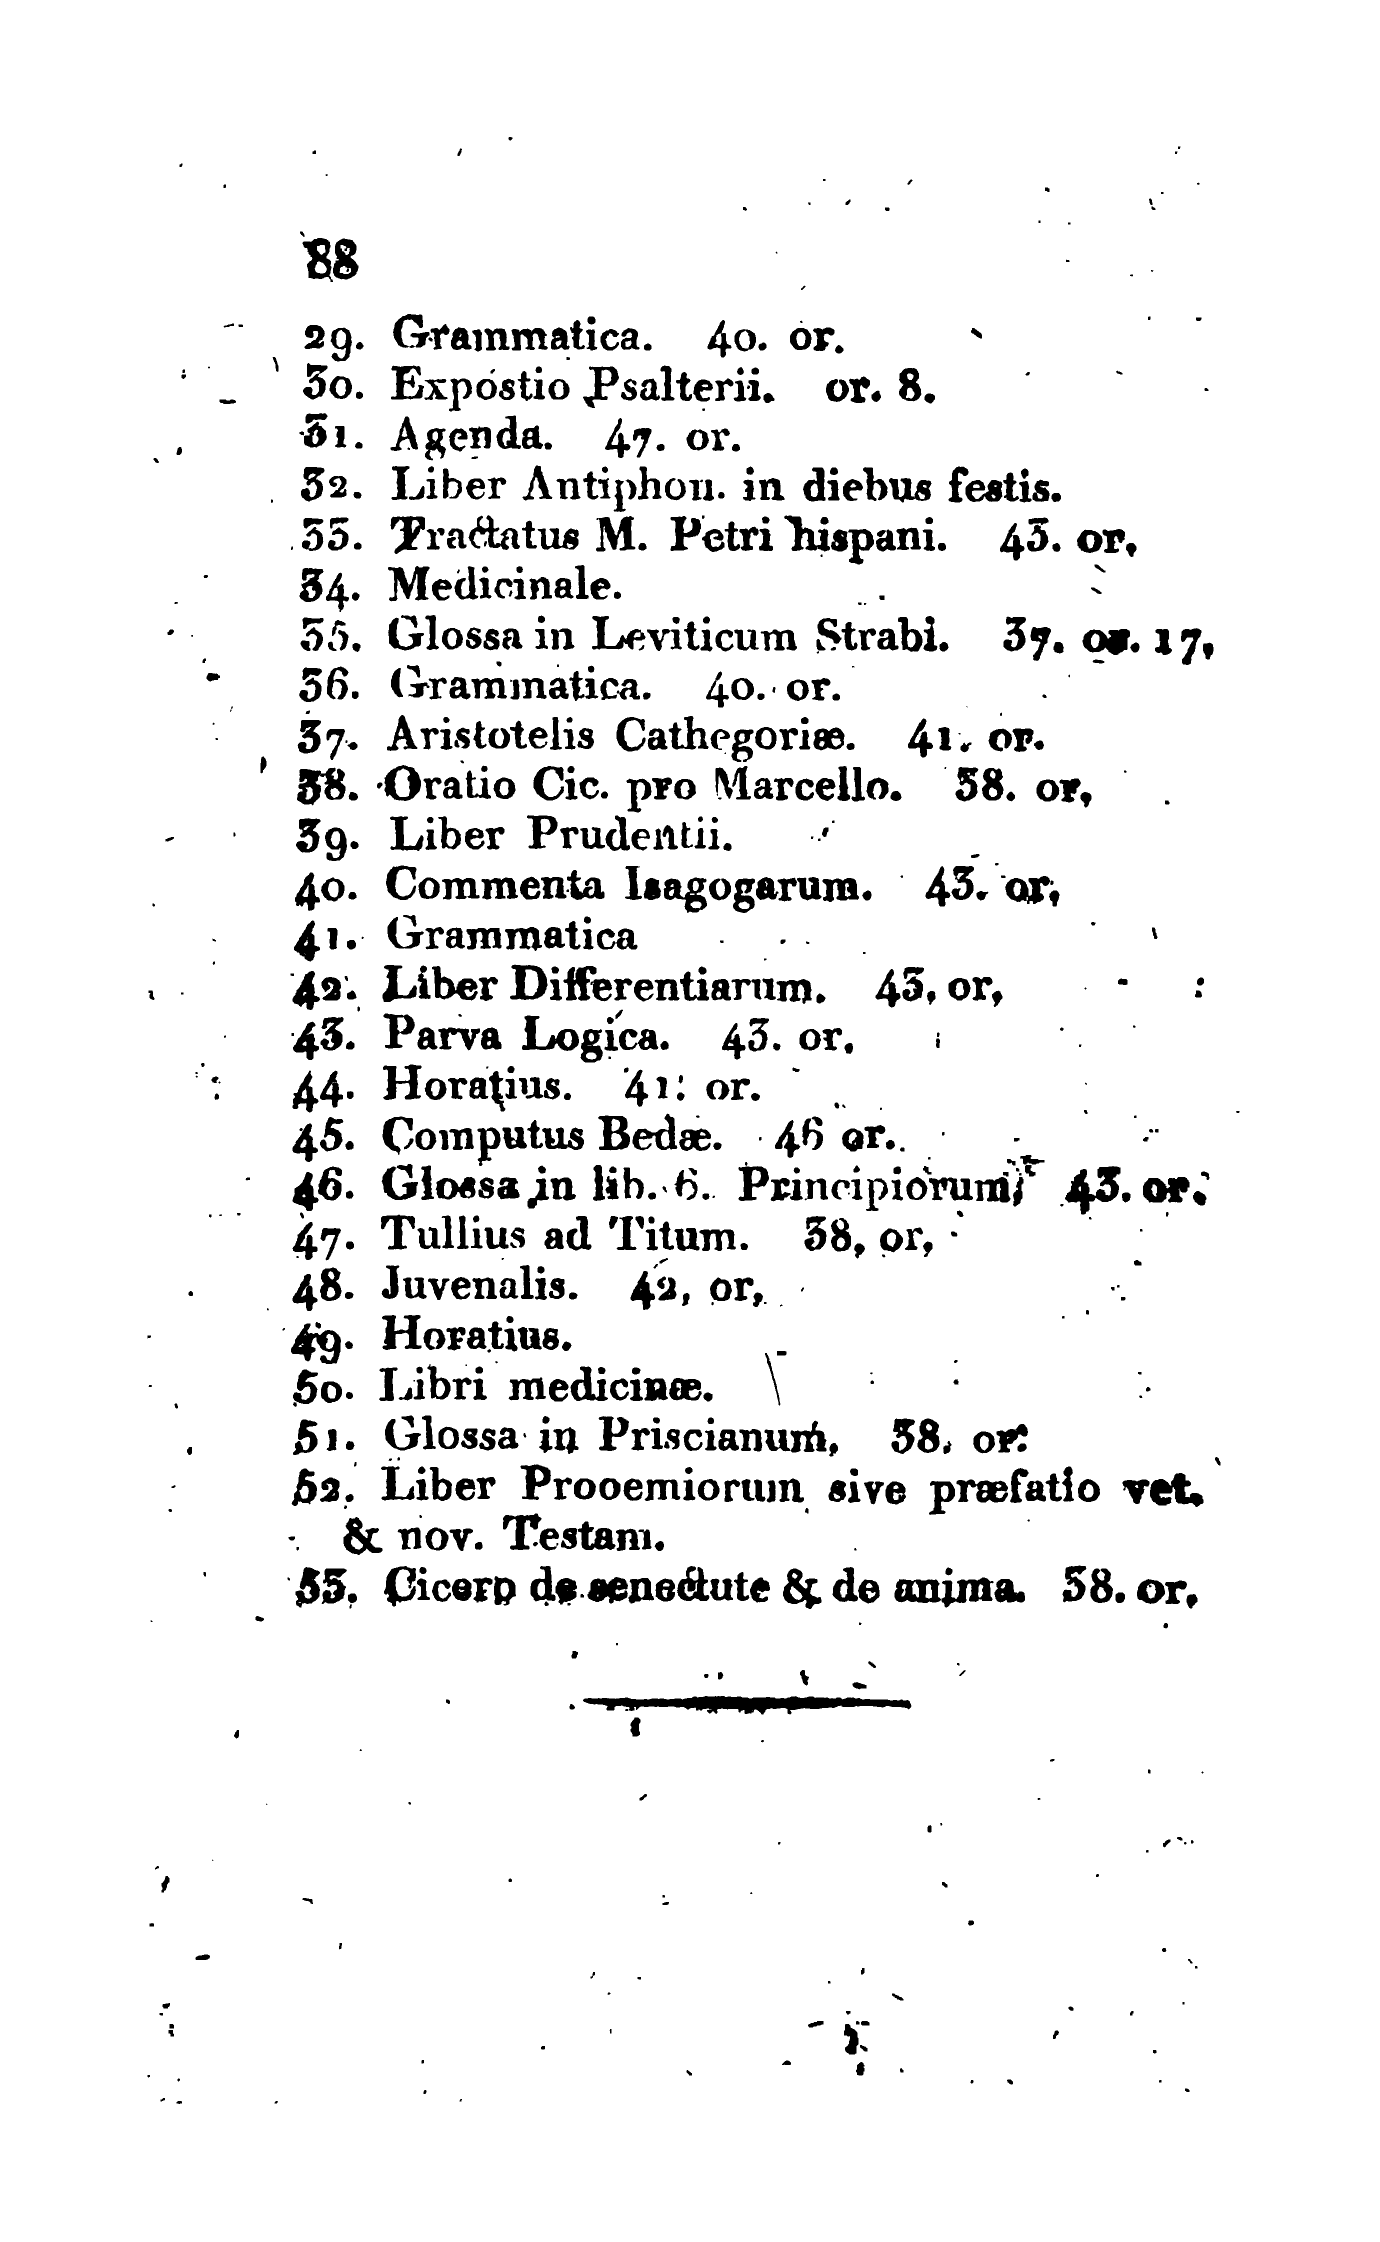 88
29. Grammatica. 40. or.
30. Expostio Psalterii. or. 8.
31. Agenda. 47. or.
32. Liber Antiphon. in diebus festis.
33. Tractatus M. Petri hispani. 43. or.
34. Medicinale.
35. Glossa in Leviticum Strabi. 37. or. 17,
36. Grammatica. 40. or.
37. Aristotelis Cathegoriæ. 41. or.
38. Oratio Cic. pro Marcello. 38. or,
39. Liber Prudentii.
40. Commenta Isagogarum. 43. or,
41. Grammatica
42. Liber Differentiarum. 43, or,
43. Parva Logica. 43. or.
44. Horatius. 41. or.
45. Computus Bedæ. 46 or.
46. Glossa in lib. 6. Principiorum, 43. or.
47. Tullius ad Titum. 38, or,
48. Juvenalis. 42, or,
49. Horatius.
50. Libri medicinæ.
51. Glossa in Priscianum, 38. or.
52. Liber Prooemiorum sive præfatio vet.
& nov. Testam.
53. Cicero de senectute & de anima. 38. or,